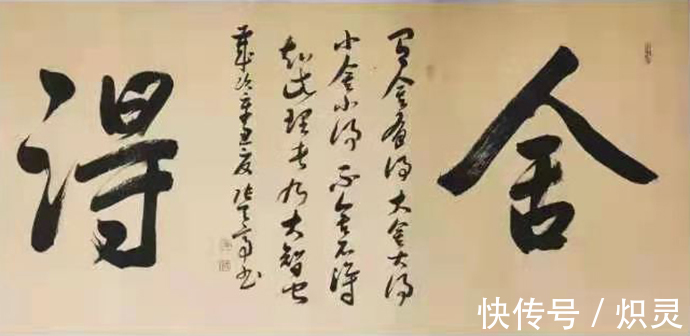 舍
有舍有得大舍大得
小舍小得不舍不得
知此理者乃大智也
岁次辛丑夏
得
快传号 / 炽灵